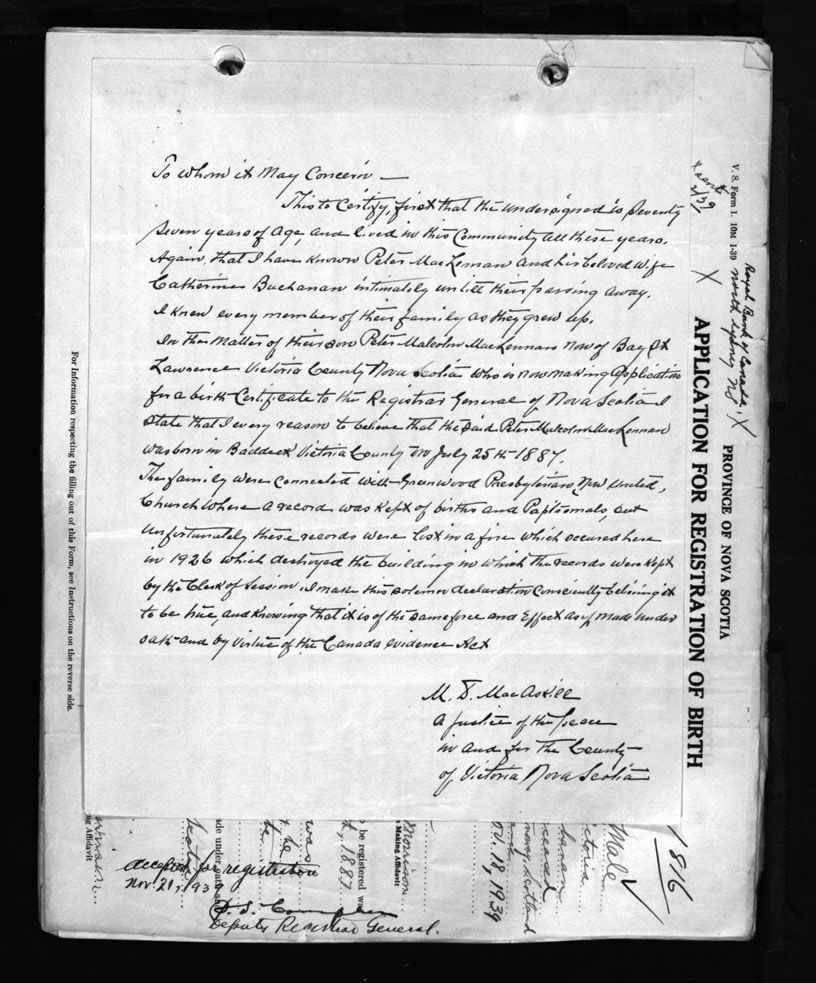 To whom it May Concern —
This to Certify, first that the undersigned is Seventy
Seven years of Age, and lived in this Community all these years.
Again, that I have known Peter MacLennan and his beloved wife
Catherine Buchanan intimately untill their passing away.
I knew every member of their family as they grew up.
In the Matter of their son Peter Malcolm MacLennan now of Bay St
Lawrence Victoria County Nova Scotia who is now making application
for a birth Certificate to the Registrar General of Nova Scotia I
state that I every reason to believe that the said Peter Malcolm MacLennan
was born in Baddeck Victoria County on July 25th 1887.
The family were connected with Greenwood Presbyterian Now United,
Church where a record was kept of births and Paptismals, but
unfortunately these records were lost in a fire which occured here
in 1926 which destroyed the building in which the records were kept
by the Clerk of Session. I make this solemn declaration
to be true, and knowing that it is of the same force and Effect as if made under
oath and by virtue of the Canada evidence Act
M. D. MacAskill
a Justice of the peace
in and for the County
of Victoria Nova Scotia
V. S. Form 1. 10M 1-39
Royal Bank of Canada,
North Sydney NS
X
X
PROVINCE OF NOVA SCOTIA
APPLICATION FOR REGISTRATION OF BIRTH
For Information respecting the filling out of this Form, see Instructions on the reverse side.
1816
Male
ictoria
Scotland
18, 1939
Morrison
Making Affidavit
be registered was
1887
was
be
ade under oath and
ng Affidavit
accepted for registration
Nov. 21, 193
Deputy Registrar General.